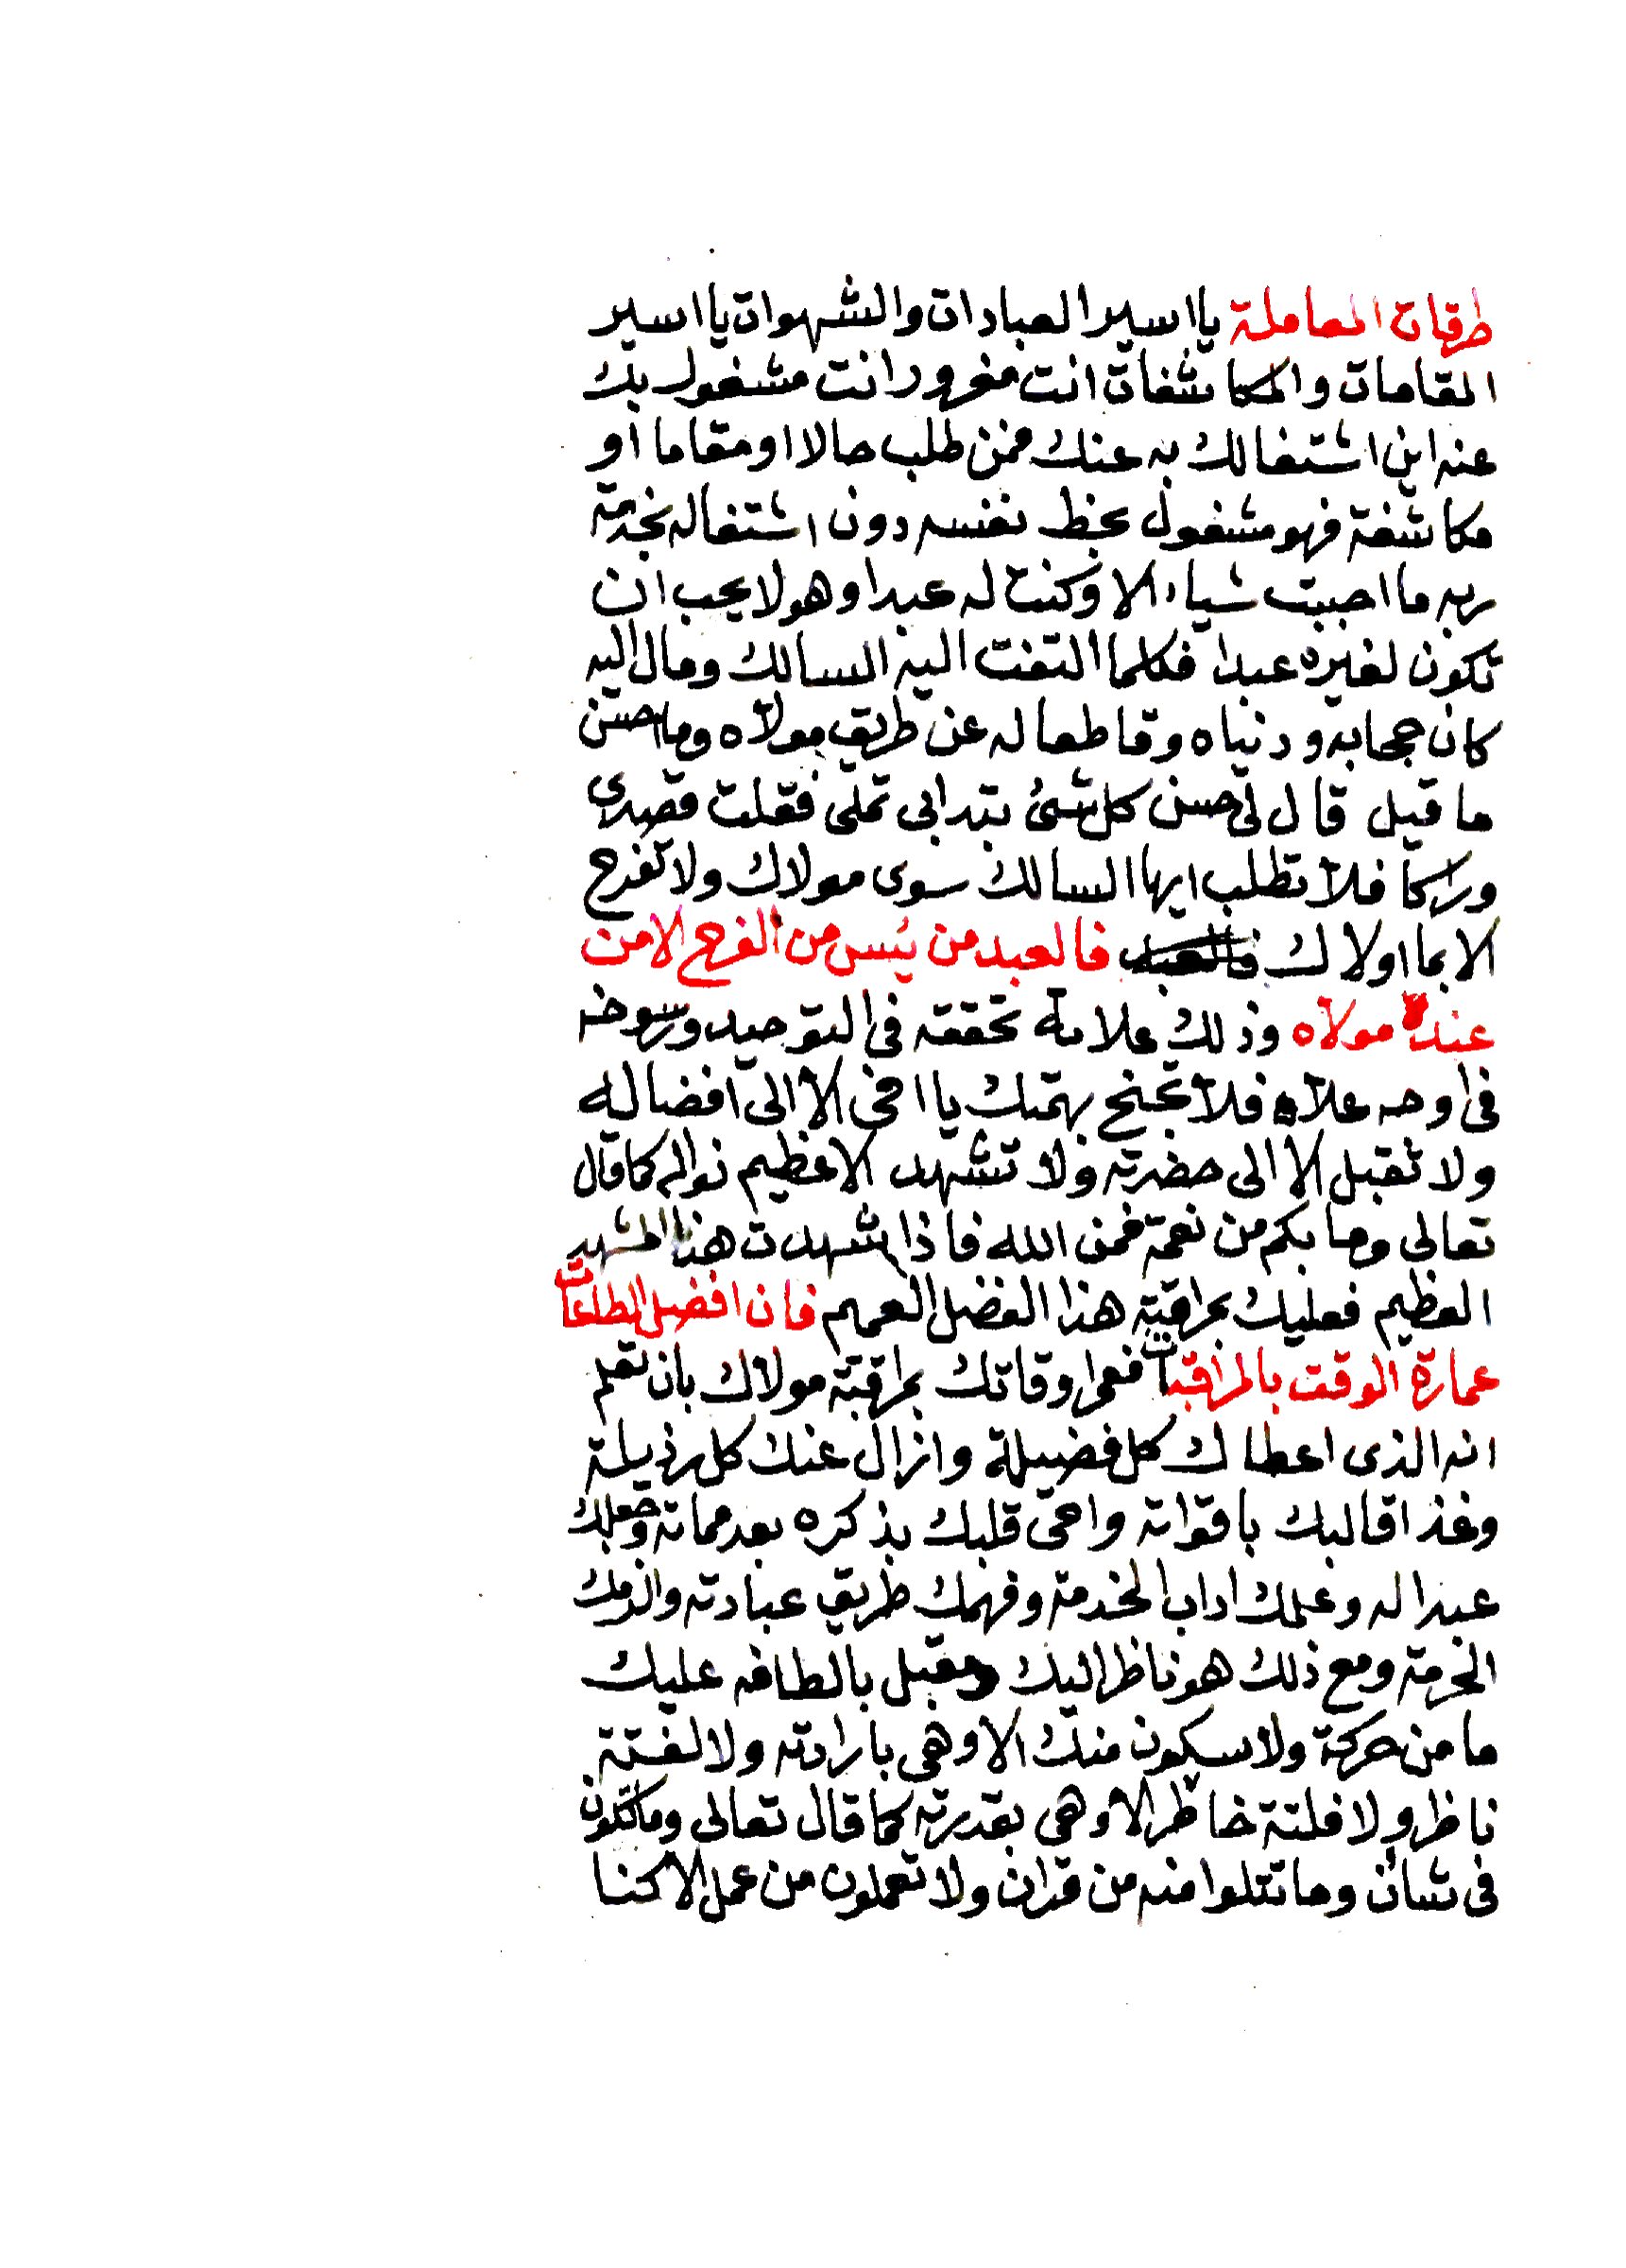 طرقات المعاملة يا اسير العبادات والشهوات يا اسير
المقامات والمكاشفات انت مغرور انت مشغول بك
عنه اين اشتغالك به عنك فمن طلب حالا او مقاما او
مكاشفة فهو مشغول بحظ نفسه دون اشتغاله بخدمة
ربه ما احببت شياء الا وكنت له عبدا وهو لا يحب ان
تكون لغيره عبدا فكلما التفت اليه السالك ومال اليه
كان حجابه ودنياه وقاطعا له عن طريق مولاه وما احسن
ما قيل قال لى حسن كل شئ تبدا بى تملى فقلت قصدى
وراكا فلا تطلب ايها السالك سوى مولاك ولا تفرح
الا بما اولاك فالعبد من يئس من الفرح الا من
عند مولاه وذلك علامة تحققه فى التوحيد ورسوخه
فى اوحه علاه فلا تجنح بهمتك يا اخى الا الى افضاله
ولا تقبل الا الى حضرته ولا تشهد الا عظيم نواله كما قال
تعالى وما بكم من نعمة فمن الله فاذا شهدت هذا المشهد
العظيم فعليك بمراقبة هذا الفضل العميم فان افضل الطاعات
عمارة الوقت بالمراقبات فعمر اوقاتك بمراقبة مولاك بان تعلم
انه الذى اعطاك كل فضيلة وازال عنك كل رذيلة
وغذا قالبك باقواته واحى قلبك بذكره بعد مماته وجعلك
عبدا له وعلمك اداب الخدمة وفهمك طريق عبادته والزمك
الحرمة ومع ذلك هو ناظر اليك ومقبل بالطافه عليك
ما من حركة ولا سكون منك الا وهى بارادته ولا لفتة
ناظر ولا فلتة خاطر الا وهى بقدرته كما قال تعالى وما تكون
فى شان وما تتلوا منه من قران ولا تعملون من عمل الا كنا